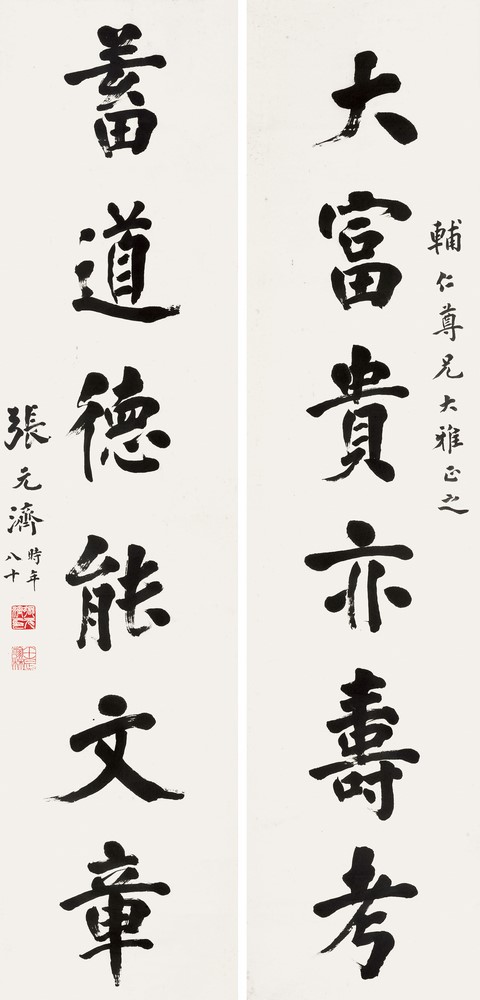 輔仁尊兄大雅正之
大富貴亦壽考
蓄道德能文章
張元濟時年八十